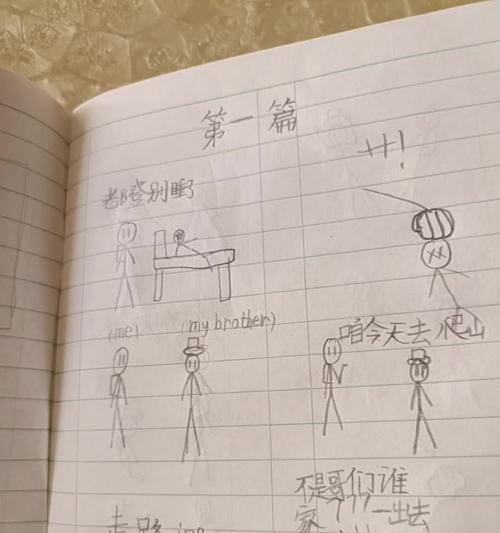 第一篇
老B登别睡了
(me)
(my brother)
咱今天去爬山
不是哥们谁
家
一出去
走路ing